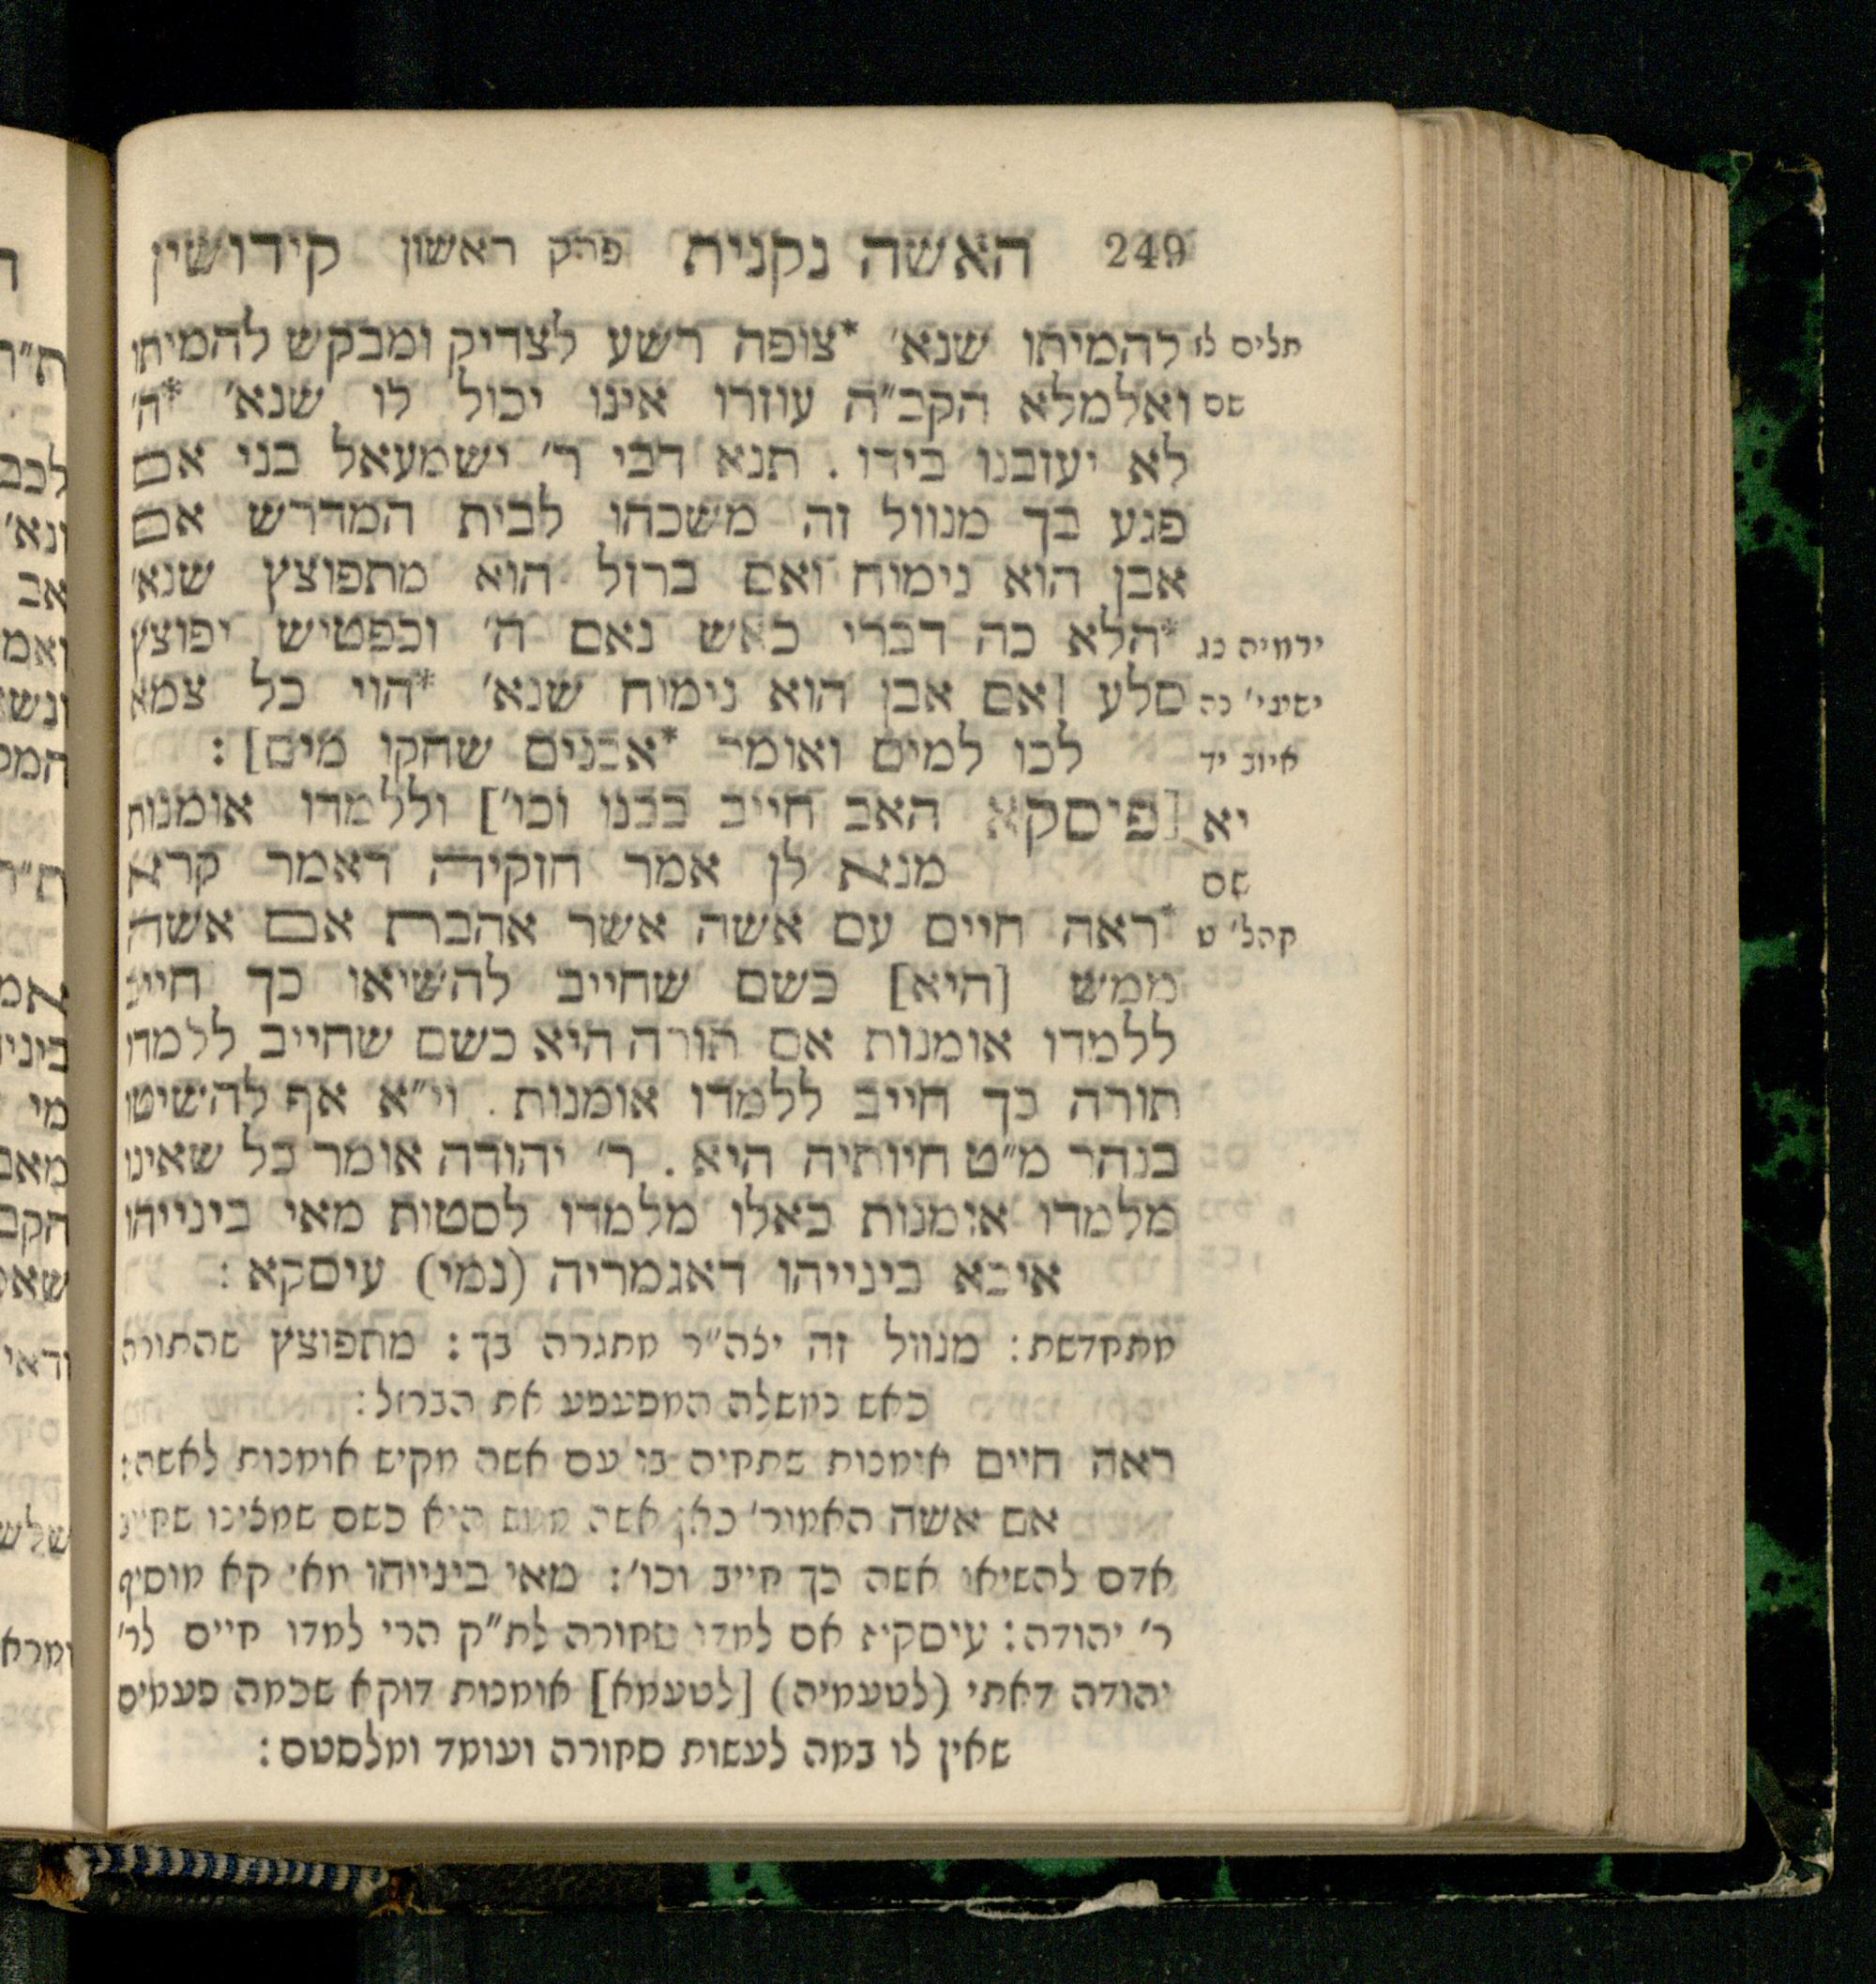 249 האשה נקנית פרק ראשון קידושין
תלים לז להמיתו שנא׳ *צופה רשע לצדיק ומבקש להמיתו
שם ואלמלא הקב״ה עוזרו אינו יכול לו שנא׳ *ה׳
לא יעזבנו בידו . תנא דבי ר׳ ישמעאל בני אם
פגע בך מנוול זה משכהו לבית המדרש אם
אבן הוא נימוח ואם ברזל הוא מתפוצץ שנא׳
ירמיה כג *הלא כה דברי כאש נאם ה׳ וכפטיש יפוצץ
ישעי׳ נה סלע [אם אבן הוא נימוח שנא׳ *הוי כל צמא
איוב יד לכו למים ואומר *אבנים שחקו מים] :
יא [פיסקא האב חייב בבנו וכו׳] וללמדו אומנות
שם מנא לן אמר חזקיה דאמר קרא
קהל׳ ט *ראה חיים עם אשה אשר אהבת אם אשה
ממש [היא] כשם שחייב להשיאו כך חייב
ללמדו אומנות אם תורה היא כשם שחייב ללמדו
תורה כך חייב ללמדו אומנות . וי״א אף להשיטו
בנהר מ״ט חיותיה היא . ר׳ יהודה אומר כל שאינו
מלמדו אומנות כאלו מלמדו לסטות מאי בינייהו
איכא בינייהו דאגמריה (נמי) עיסקא :
מתקדשת : מנוול זה יצה״ר מתגרה בך : מתפוצץ שהתורה
כאש נמשלה המפעפע את הברזל :
ראה חיים אומנות שתחיה בו עם אשה מקיש אומנות לאשה :
אם אשה האמור׳ כאן אשה ממש היא כשם שמצינו שחייב
אדם להשיאו אשה כך חייב וכו׳ : מאי בינייהו מאי קא מוסיף
ר׳ יהודה : עיסקא אם למדו סחורה לת״ק הרי למדו חיים לר׳
יהודה דאתי (לטעמיה) [לטעמא] אומנות דוקא שכמה פעמים
שאין לו במה לעשות סחורה ועומד ומלסטם :